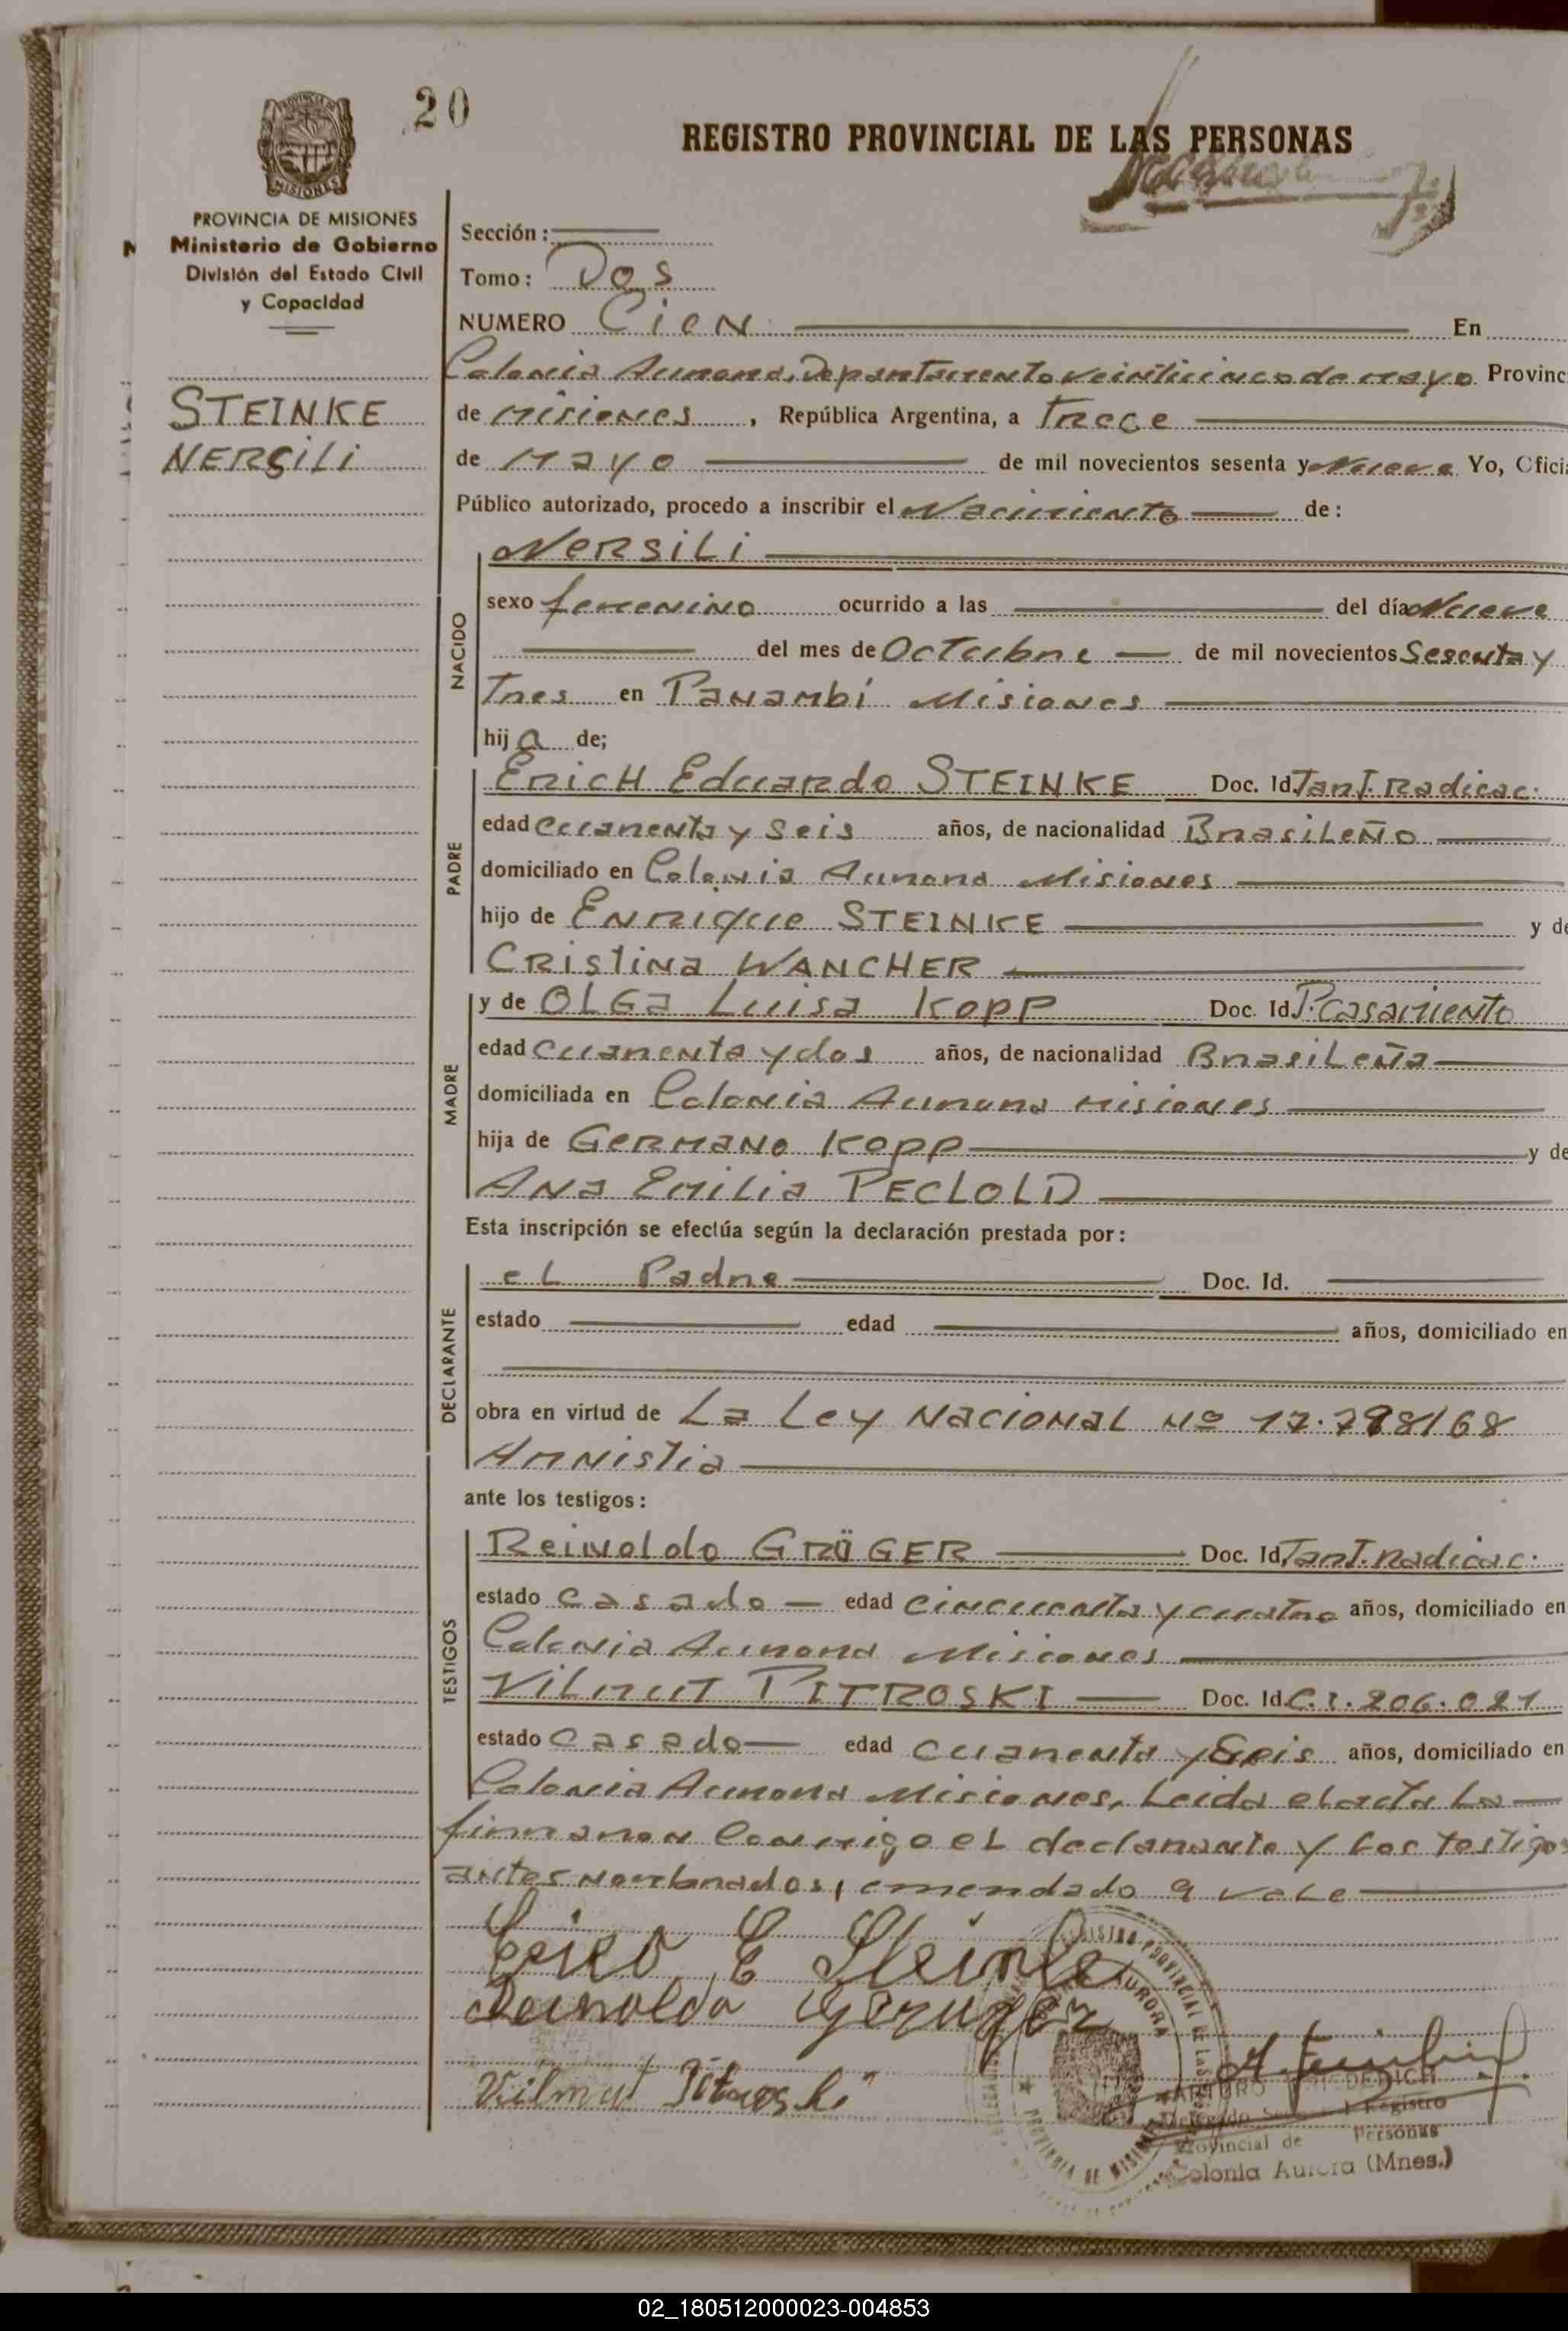 20
REGISTRO PROVINCIAL DE LAS PERSONAS
PROVINCIA DE MISIONES
Ministerio de Gobierno
División del Estado Civil
y Capacidad
STEINKE
NERSiLi
Sección :
Tomo : Dos
NUMERO Cien En
Colonia Aurora, Departamento veinticinco de mayo Provinc
de Misiones , República Argentina, a Trece
de Mayo de mil novecientos sesenta y Nueve Yo, Ofici
Público autorizado, procedo a inscribir el Nacimiento de :
NERSiLi
NACIDO
sexo femenino ocurrido a las del día Nueve
del mes de Octubre de mil novecientos Sesenta y
Tres en Panambí Misiones
hij a de;
PADRE
EricH Eduardo STEINKE Doc. Id Tar J. Radicac.
edad cuarenta y seis años, de nacionalidad Brasileño
domiciliado en Colonia Aurora Misiones
hijo de Enrique STEINKE y de
Cristina WANCHER
MADRE
y de OLGa Luisa Kopp Doc. Id P. Casamiento
edad cuarenta y dos años, de nacionalidad Brasileña
domiciliada en Colonia Aurora Misiones
hija de GERMANO Kopp y de
Ana Emilia PECLOLD
Esta inscripción se efectúa según la declaración prestada por :
DECLARANTE
el Padre Doc. Id.
estado edad años, domiciliado en
obra en virtud de La Ley Nacional Nº 17.798/68
Amnistia
ante los testigos :
TESTIGOS
Reinoldo GRÜGER Doc. Id Tar J. Radicac.
estado casado edad cincuenta y cuatro años, domiciliado en
Colonia Aurora Misiones
Vilmut PITROSKI Doc. Id C.I. 206.021
estado Casado edad cuarenta y Seis años, domiciliado en
Colonia Aurora Misiones, Leida el acta La
firmaron conmigo el declarante y los testigos
antes nombrados, enmendado 9 vale
Erico E Steinke
Reinoldo Grüger
Vilmut Pitroski
ARTURO
Registro
Provincial de Personas
Colonia Aurora (Mnes.)
02_180512000023-004853